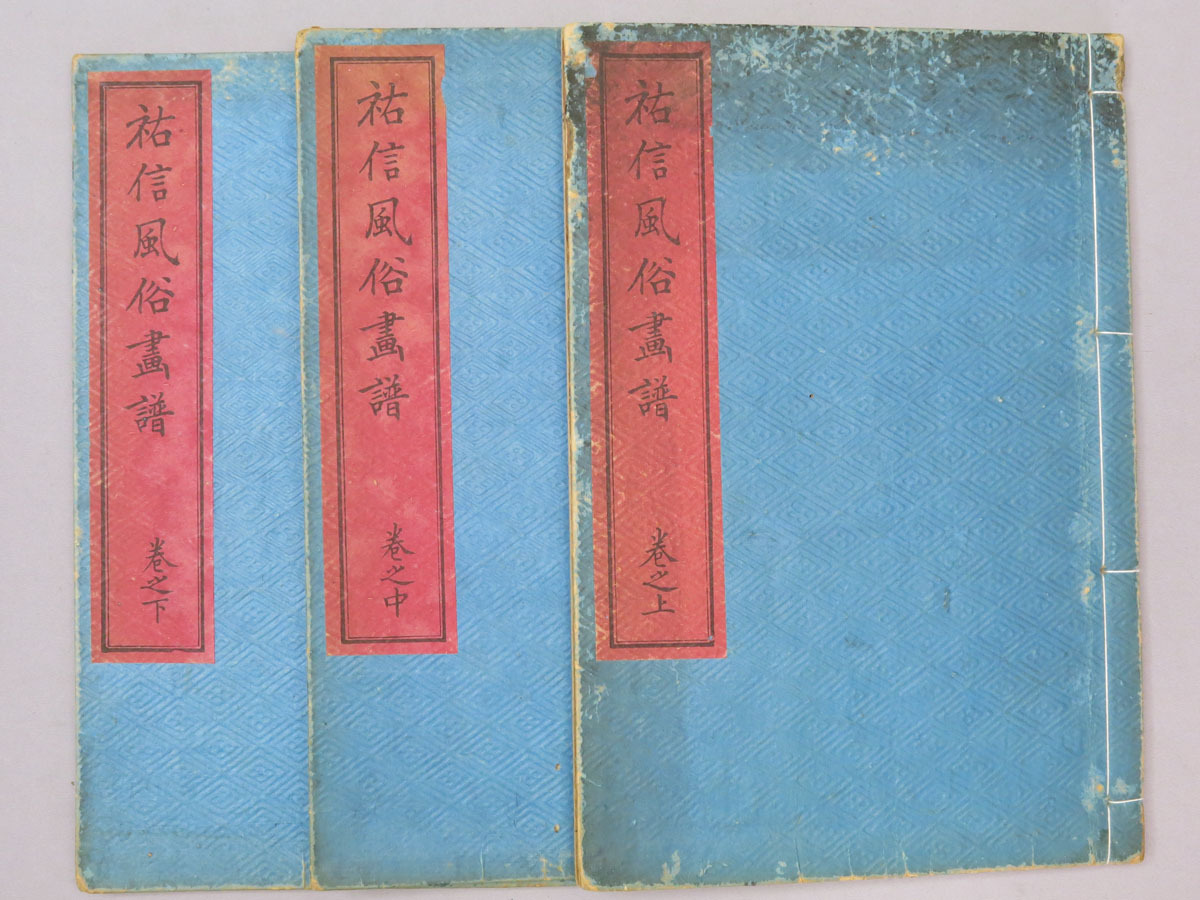 祐信風俗畫譜
卷之上
祐信風俗畫譜
卷之中
祐信風俗畫譜
卷之下